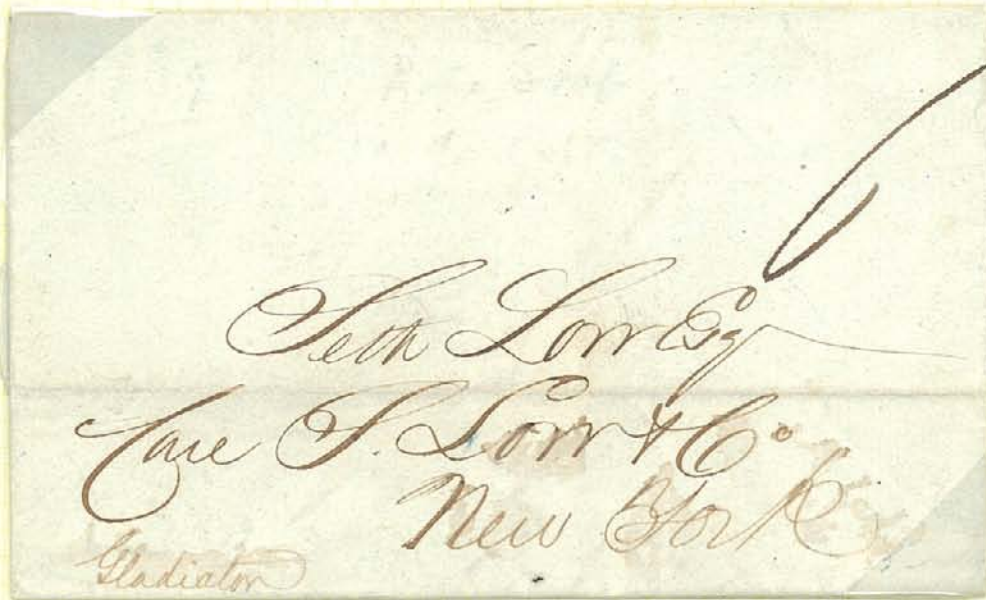 6
Seth Low Esq
Care S. Low & Co
New York
Gladiator